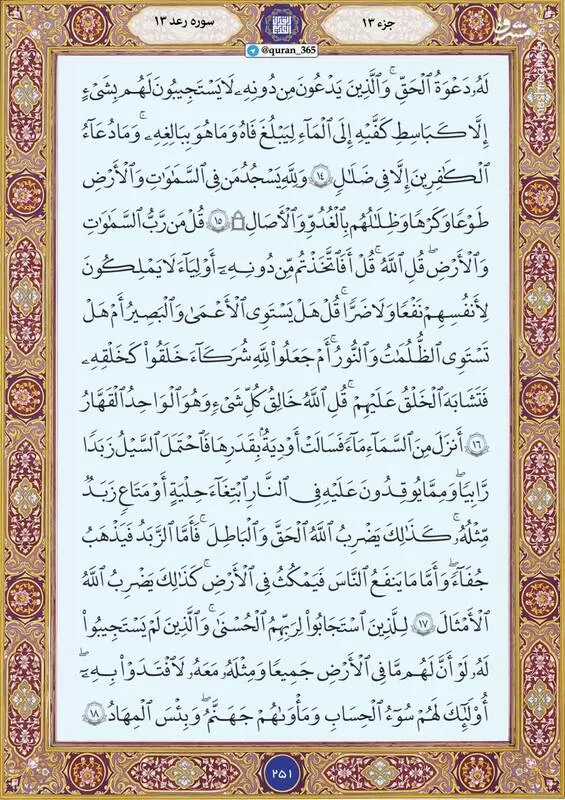 جزء ۱۳
سوره رعد ۱۳
@quran_365
مشرق
لَهُۥ دَعْوَةُ ٱلْحَقِّ ۖ وَٱلَّذِينَ يَدْعُونَ مِن دُونِهِۦ لَا يَسْتَجِيبُونَ لَهُم بِشَىْءٍ
إِلَّا كَبَٰسِطِ كَفَّيْهِ إِلَى ٱلْمَآءِ لِيَبْلُغَ فَاهُ وَمَا هُوَ بِبَٰلِغِهِۦ ۚ وَمَا دُعَآءُ
ٱلْكَٰفِرِينَ إِلَّا فِى ضَلَٰلٍ ۝١٤ وَلِلَّهِ يَسْجُدُ مَن فِى ٱلسَّمَٰوَٰتِ وَٱلْأَرْضِ
طَوْعًا وَكَرْهًا وَظِلَٰلُهُم بِٱلْغُدُوِّ وَٱلْءَاصَالِ ۩ ۝١٥ قُلْ مَن رَّبُّ ٱلسَّمَٰوَٰتِ
وَٱلْأَرْضِ قُلِ ٱللَّهُ ۚ قُلْ أَفَٱتَّخَذْتُم مِّن دُونِهِۦٓ أَوْلِيَآءَ لَا يَمْلِكُونَ
لِأَنفُسِهِمْ نَفْعًا وَلَا ضَرًّا ۚ قُلْ هَلْ يَسْتَوِى ٱلْأَعْمَىٰ وَٱلْبَصِيرُ أَمْ هَلْ
تَسْتَوِى ٱلظُّلُمَٰتُ وَٱلنُّورُ ۗ أَمْ جَعَلُوا۟ لِلَّهِ شُرَكَآءَ خَلَقُوا۟ كَخَلْقِهِۦ
فَتَشَٰبَهَ ٱلْخَلْقُ عَلَيْهِمْ ۚ قُلِ ٱللَّهُ خَٰلِقُ كُلِّ شَىْءٍ وَهُوَ ٱلْوَٰحِدُ ٱلْقَهَّٰرُ
۝١٦ أَنزَلَ مِنَ ٱلسَّمَآءِ مَآءً فَسَالَتْ أَوْدِيَةٌۢ بِقَدَرِهَا فَٱحْتَمَلَ ٱلسَّيْلُ زَبَدًا
رَّابِيًا ۚ وَمِمَّا يُوقِدُونَ عَلَيْهِ فِى ٱلنَّارِ ٱبْتِغَآءَ حِلْيَةٍ أَوْ مَتَٰعٍ زَبَدٌ
مِّثْلُهُۥ ۚ كَذَٰلِكَ يَضْرِبُ ٱللَّهُ ٱلْحَقَّ وَٱلْبَٰطِلَ ۚ فَأَمَّا ٱلزَّبَدُ فَيَذْهَبُ
جُفَآءً ۖ وَأَمَّا مَا يَنفَعُ ٱلنَّاسَ فَيَمْكُثُ فِى ٱلْأَرْضِ ۚ كَذَٰلِكَ يَضْرِبُ ٱللَّهُ
ٱلْأَمْثَالَ ۝١٧ لِلَّذِينَ ٱسْتَجَابُوا۟ لِرَبِّهِمُ ٱلْحُسْنَىٰ ۚ وَٱلَّذِينَ لَمْ يَسْتَجِيبُوا۟
لَهُۥ لَوْ أَنَّ لَهُم مَّا فِى ٱلْأَرْضِ جَمِيعًا وَمِثْلَهُۥ مَعَهُۥ لَٱفْتَدَوْا۟ بِهِۦٓ ۚ
أُو۟لَٰٓئِكَ لَهُمْ سُوٓءُ ٱلْحِسَابِ وَمَأْوَىٰهُمْ جَهَنَّمُ ۖ وَبِئْسَ ٱلْمِهَادُ ۝١٨
۲۵۱